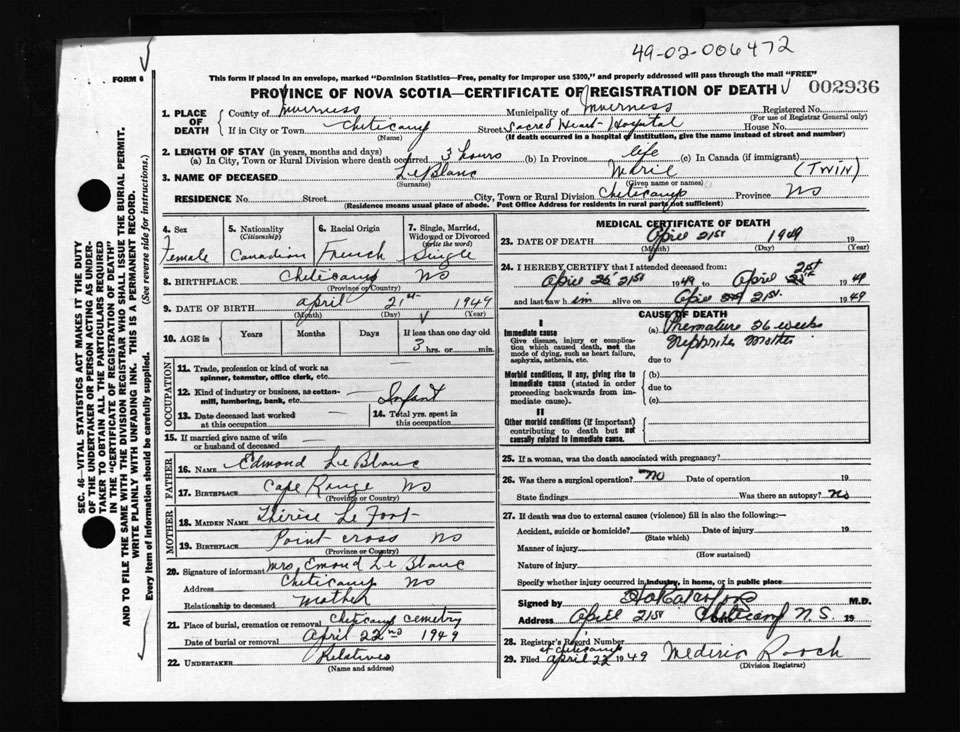 49-02-006472
FORM 6
This form if placed in an envelope, marked "Dominion Statistics—Free, penalty for improper use $300," and properly addressed will pass through the mail "FREE"
PROVINCE OF NOVA SCOTIA—CERTIFICATE OF REGISTRATION OF DEATH 002936
1. PLACE OF DEATH
County of Inverness Municipality of Inverness Registered No.
(For use of Registrar General only)
If in City or Town Cheticamp Street Sacred Heart Hospital House No.
(Name) (If death occurred in a hospital or institution, give the name instead of street and number)
2. LENGTH OF STAY (in years, months and days)
(a) In City, Town or Rural Division where death occurred 3 hours (b) In Province life (c) In Canada (if immigrant)
3. NAME OF DECEASED LeBlanc Marie (TWIN)
(Surname) (Given name or names)
RESIDENCE No. Street City, Town or Rural Division Cheticamp Province NS
(Residence means usual place of abode. Post Office Address for residents in rural parts not sufficient)
4. Sex
Female
5. Nationality
(Citizenship)
Canadian
6. Racial Origin
French
7. Single, Married, Widowed or Divorced
(write the word)
Single
8. BIRTHPLACE Cheticamp NS
(Province or Country)
9. DATE OF BIRTH April 21st 1949
(Month) (Day) (Year)
10. AGE in
Years Months Days If less than one day old
3 hrs. or min.
OCCUPATION
11. Trade, profession or kind of work as spinner, teamster, office clerk, etc.
12. Kind of industry or business, as cotton-mill, lumbering, bank, etc. Infant
13. Date deceased last worked at this occupation
14. Total yrs. spent in this occupation
15. If married give name of wife or husband of deceased
FATHER
16. NAME Edmond Le Blanc
17. BIRTHPLACE Cape Rouge NS
(Province or Country)
MOTHER
18. MAIDEN NAME Thérèse Le Fort
19. BIRTHPLACE Point cross NS
(Province or Country)
20. Signature of informant Mrs. Emond Le Blanc
Address Cheticamp NS
Relationship to deceased Mother
21. Place of burial, cremation or removal Cheticamp Cemetry
Date of burial or removal April 22nd 1949
22. UNDERTAKER Relatives
(Name and address)
MEDICAL CERTIFICATE OF DEATH
23. DATE OF DEATH April 21st 1949 19
(Month) (Day) (Year)
24. I HEREBY CERTIFY that I attended deceased from:
April 21st 1949 to April 21st 1949
and last saw him alive on April 21st. 1949
CAUSE OF DEATH
I
Immediate cause
Give disease, injury or complication which caused death, not the mode of dying, such as heart failure, asphyxia, asthenia, etc.
(a) Premature 26 weeks
Nephritis Mother
due to
Morbid conditions, if any, giving rise to immediate cause (stated in order proceeding backwards from immediate cause).
(b)
due to
(c)
II
Other morbid conditions (if important) contributing to death but not causally related to immediate cause.
25. If a woman, was the death associated with pregnancy?
26. Was there a surgical operation? No Date of operation 19
State findings Was there an autopsy? No
27. If death was due to external causes (violence) fill in also the following:—
Accident, suicide or homicide? Date of injury 19
(State which)
Manner of injury
(How sustained)
Nature of injury
Specify whether injury occurred in industry, in home, or in public place
Signed by M.D.
Address April 21st Cheticamp N.S. 19
28. Registrar's Record Number
at Cheticamp
29. Filed April 22 1949 Mederic Roach
(Division Registrar)
SEC. 46—VITAL STATISTICS ACT MAKES IT THE DUTY
OF THE UNDERTAKER OR PERSON ACTING AS UNDER-
TAKER TO OBTAIN ALL THE PARTICULARS REQUIRED
IN THE "CERTIFICATE OF REGISTRATION OF DEATH"
AND TO FILE THE SAME WITH THE DIVISION REGISTRAR WHO SHALL ISSUE THE BURIAL PERMIT.
WRITE PLAINLY WITH UNFADING INK. THIS IS A PERMANENT RECORD.
Every item of information should be carefully supplied. (See reverse side for instructions.)